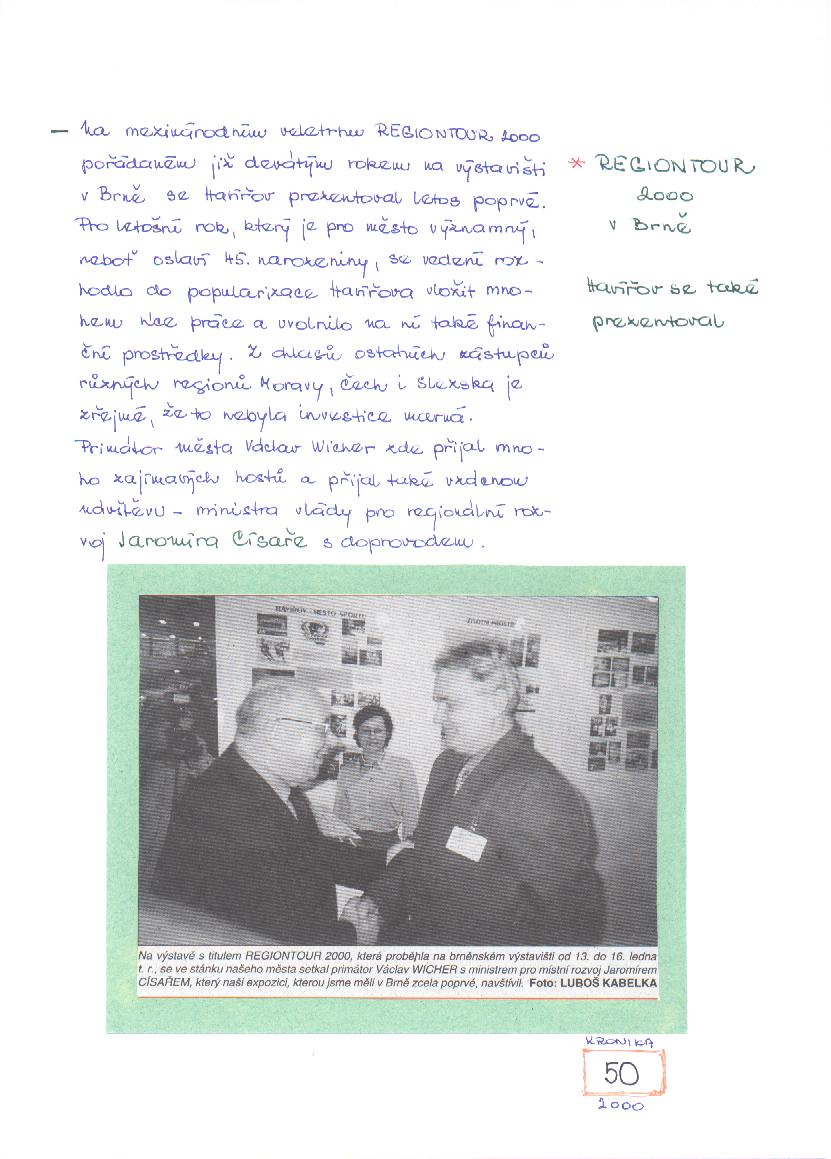 – Na mezinárodním veletrhu REGIONTOUR 2000
pořádaném již devátým rokem na výstavišti
v Brně se Havířov prezentoval letos poprvé.
Pro letošní rok, který je pro město významný,
neboť oslaví 45. narozeniny, se vedení roz-
hodlo do popularizace Havířova vložit mno-
hem více práce a uvolnilo na ni také finan-
ční prostředky. Z ohlasů ostatních zástupců
různých regionů Moravy, Čech i Slezska je
zřejmé, že to nebyla investice marná.
Primátor města Václav Wicher zde přijal mno-
ho zajímavých hostů a přijal také vzácnou
návštěvu – ministra vlády pro regionální roz-
voj Jaromíra Císaře s doprovodem.
* REGIONTOUR
2000
v Brně
Havířov se také
prezentoval
HAVÍŘOV - MĚSTO SPORTU
ŽIVOTNÍ PROSTŘEDÍ
Na výstavě s titulem REGIONTOUR 2000, která proběhla na brněnském výstavišti od 13. do 16. ledna
t. r., se ve stánku našeho města setkal primátor Václav WICHER s ministrem pro místní rozvoj Jaromírem
CÍSAŘEM, který naši expozici, kterou jsme měli v Brně zcela poprvé, navštívil. Foto: LUBOŠ KABELKA
KRONIKA
50
2000